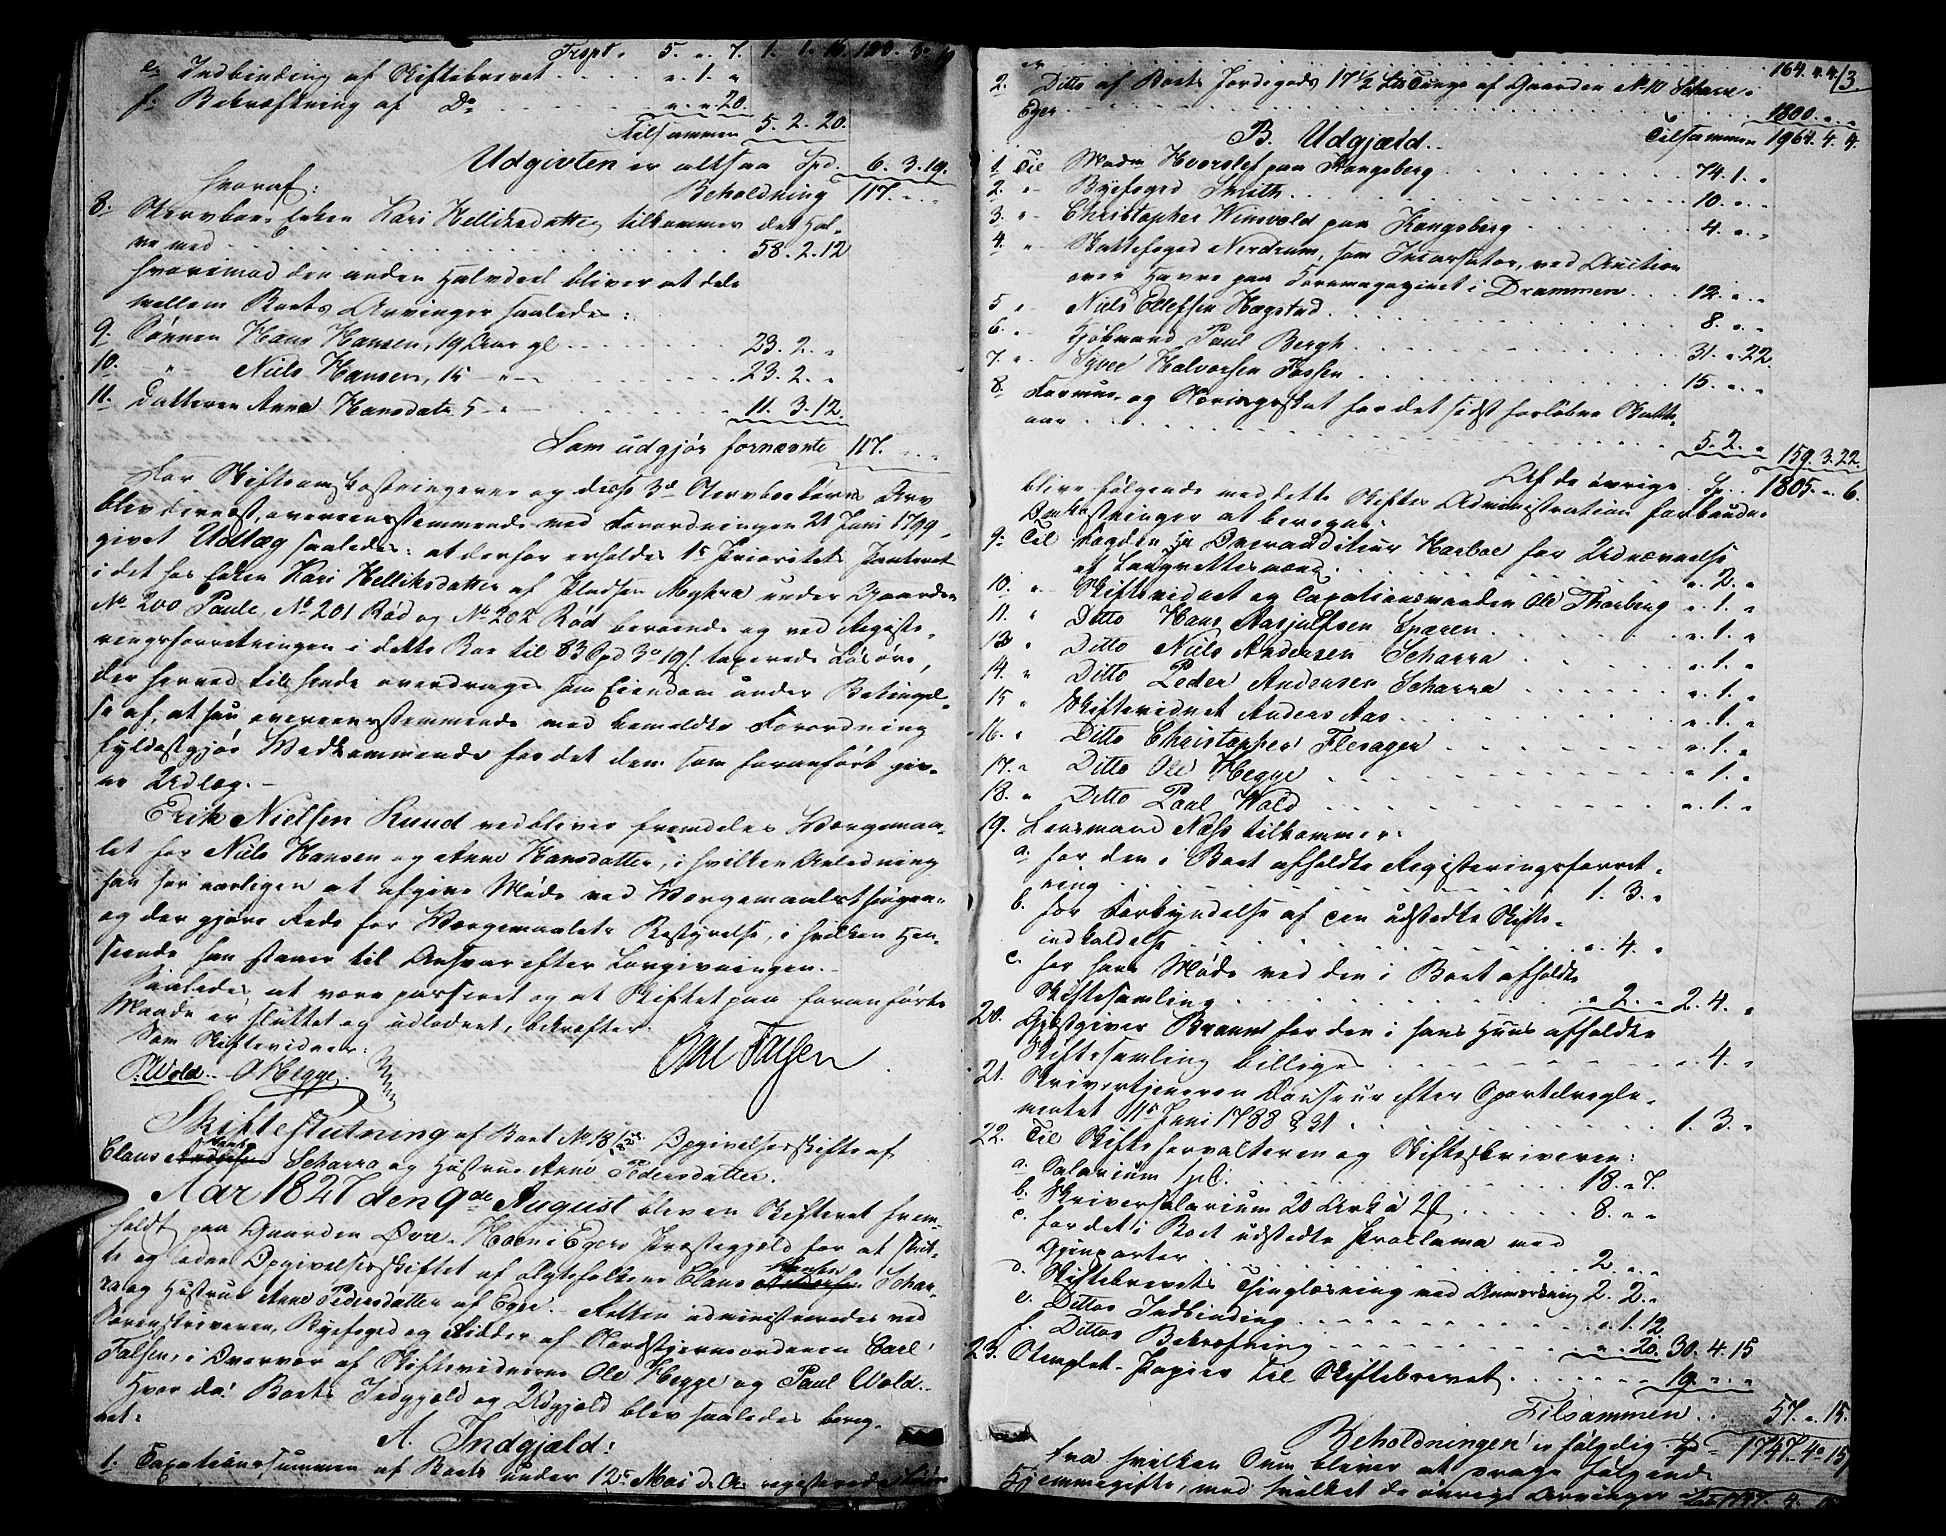 Trspt. 5. " 7. 1. 1. 16. 120. 3. 19
e. Indbinding af Skiftebrevet . . . . " 1. "
f. Bekræftning af Do . . . . " " 20.
Tilsammen 5. 2. 20.
Udgivten er altsaa Spd. 6. 3. 19.
hvoraf: Beholdning 117. " "
8. Stervboe Enken Kari Helliksdatter tilkommer det Hal-
ve med . . . . 58. 2. 12
hvorimod den anden Halvdeel bliver at dele
mellem Boets Arvinger saaledes:
9. Sønnen Hans Hansen, 19 Aar gl . . . . 23. 2. "
10. " Niels Hansen, 15 — " — . . . . 23. 2. "
11. Datteren Anne Hansdatr 5 — " — . . . . 11. 3. 12.
Som udgjør fornævnte 117. " "
For Skifteomkostningerne og disse 3de Stervboebørns Arv
blev dernæst, overeensstemmende med Forordningen 21 Juni 1799,
givet Udlæg saaledes: at derfor erholdes 1s Prioritets Panteret
i det hos Enken Kari Helliksdatter af Pladsen Myhra under Gaarden
No 200 Paule, No 201 Rød og No 202 Rød beroende og ved Registe-
ringsforretningen i dette Boe til 83 Spd 3 o 19 s. taxerede Løsøre,
der herved tillige hende overdrages som Eiendom under Betingel-
se af, at hun overeensstemmende med bemeldte Forordning
fyldestgjør Vedkommende for det dem som foranført giv-
ne Udlæg. —
Erik Nielsen Rund vedbliver fremdeles Værgemaa-
let for Niels Hansen og Anne Hansdatter, i hvilken Anledning
han har aarligen at afgive Møde ved Værgemaalsthingene
og der gjøre Rede for Værgemaalets Bestyrelse, i hvilken Hen-
seende han staaer til Ansvar efter Lovgivningen. —
Saaledes at være passeret og at Skiftet paa foranførte
Maade er sluttet og udloddet, bekræfter.
Som Skiftevidner: Carl Falsen
P. Wold. O Hegge.
Skifteslutning af Boet No 18 Opgivelsesskifte af
Claus Hansen Scharra og Hustrue Anne Pedersdatter.
Aar 1827 den 9de August blev en Skifteret frem-
holdt paa Gaarden Øvre-Hoen i Egers Præstegjeld for at slut-
te og ende Opgivelsesskiftet af Ægtefolkene Claus Hansen Schar-
ra og Hustrue Anne Pedersdatter af Eger. — Retten administreredes ved
Sorenskriveren, Byefoged og Ridder af Nordstjerneordenen Carl
Falsen, i Overvær af Skiftevidnerne Ole Hegge og Paul Wold.
Hvor da: Boets Indgjeld og Udgjeld blev saaledes bereg-
net:
A. Indgjæld:
1. Taxationssummen af Boets under 12te Mai d. A. registerede Løsøre
164. 4. 4.
3
2. Ditto af Boets Jordegods 17 1/2 Lb Tunge af Gaarden No 10 Scharra
Eger . . . . 1800. " "
Tilsammen 1964. 4. 4.
B. Udgjæld.
1. Til Madm Hvorslef paa Kongsberg . . . . 74. 1. "
2. " Byefoged Smith . . . . 10. " "
3. " Christopher Winsvold paa Kongsberg . . . . 4. " "
4. " Stattefoged Nerdrum, som Incassator, ved Auction
over Havre paa Kornmagazinet i Drammen . . 12. " "
5 " Niels Ellefsen Hægstad . . . . 8. " "
6. " Kjøbmand Paul Bergh . . . . 31. " 22.
7. " Syver Halvorsen Fossen . . . . 15. " "
8. Formue- og Næringsskat for det sidst forløbne Skatte-
aar . . . . 5. 2. " 159. 3. 22.
Af de øvrige Sp. 1805. " 6.
blive følgende med dette Skiftes Administration forbundne
Omkostninger at beregne:
9. Til Fogden Hr Overauditeur Harboe for Udnævnelse
af Laugrettesmænd . . . . " 2. "
10. " Skiftevidnet og Taxationsmanden Ole Thorberg " 1. "
11. " Ditto Hans Aasjulfsen Sparen . . . . " 1. "
13 " Ditto Niels Andersen Scharra . . . . " 1. "
14. " Ditto Peder Andersen Scharra . . . . " 1. "
15 " Skiftevidnet Anders Aas . . . . " 1. "
16. " Ditto Christopher Flesager . . . . " 1. "
17. " Ditto Ole Hegge . . . . " 1. "
18. " Ditto Paul Wold . . . . " 1. "
19. Lensmand Næss tilkommer:
a. for den i Boet afholdte Registeringsforret-
ning . . . . 1. 3. "
b. for Forkyndelse af den udstedte Skifte-
indkaldelse . . . . " 4. "
c. for hans Møde ved den i Boet afholdte
Skiftesamling . . . . " 2. " 2. 4. "
20. Gjestgiver Braune for den i hans Huus afholdte
Skiftesamling billiges . . . . " 4. "
21. Skrivertjeneren Douseur efter Sportelregle-
mentet 11te Juni 1788 § 31 . . . . 1. 3. "
22. Til Skifteforvalteren og Skifteskriveren:
a. Salarium pC. . . . . 18. " 7.
b. Skriversalarium 20 Ark á 2 . . . . 8. " "
c. for det i Boet udstedte Proclama med
Gjenparter . . . . 2. " "
d. Skiftebrevets Tinglæsning med Anmærkning 2. 2. "
e. Dittos Indbinding . . . . " 1. 12
f. Dittos Bekræftning . . . . " " 20. 30. 4. 15
23. Stemplet-Papir til Skiftebrevet . . . . 19. " "
Tilsammen . . 57. " 15.
Beholdningen er følgelig Spd 1747. 4 o 15
fra hvilken Sum bliver at drage følgende
Hjemmegifte, med hvilket de øvrige Arvinger
Lat. 1747. 4. 15